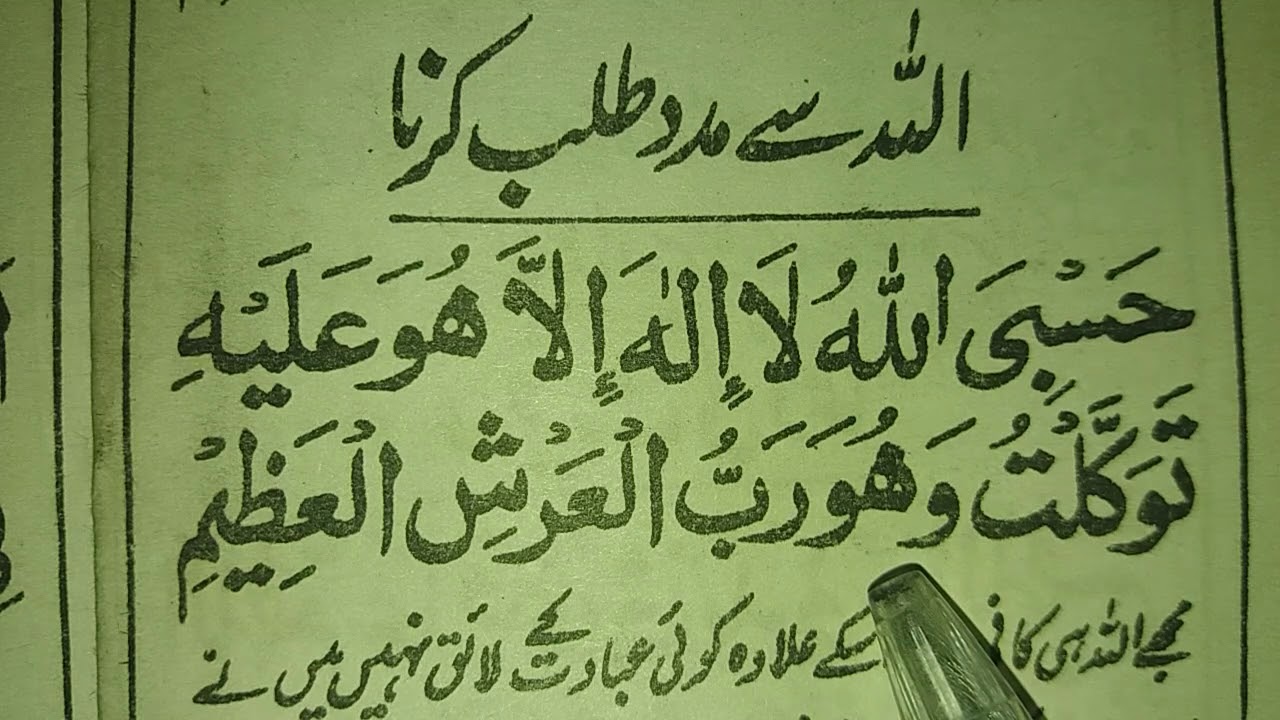 اللہ سے مدد طلب کرنا
حَسْبِیَ اللّٰهُ لَا إِلٰهَ إِلَّا هُوَ عَلَيْهِ
تَوَكَّلْتُ وَهُوَ رَبُّ الْعَرْشِ الْعَظِيْمِ
مجھے اللہ ہی کافی سکے علاوہ کوئی عبادت کے لائق نہیں میں نے